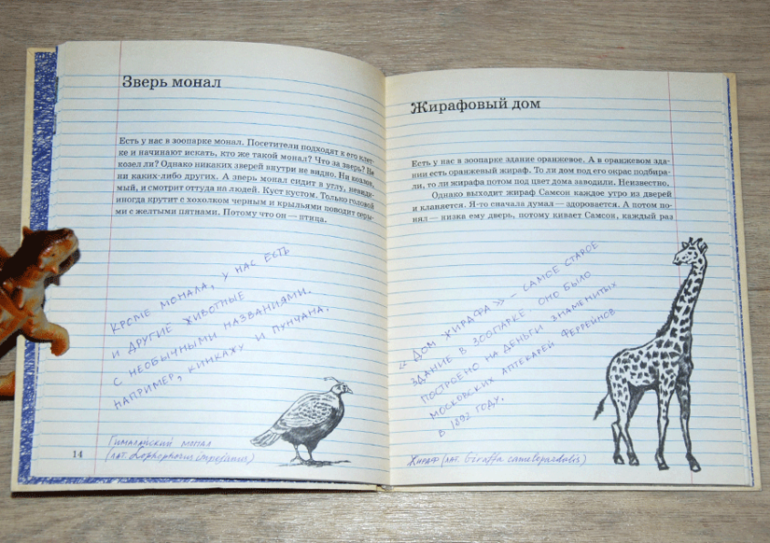 Зверь монал
Есть у нас в зоопарке монал. Посетители подходят к его клет-
ке и начинают искать, кто же такой монал? Что за зверь? Не
козел ли? Однако никаких зверей внутри не видно. Ни козлов,
ни каких-либо других. А зверь монал сидит в углу, невиди-
мый, и смотрит оттуда на людей. Куст кустом. Только головой
иногда крутит с хохолком черным и крыльями поводит серы-
ми с желтыми пятнами. Потому что он — птица.
КРОМЕ МОНАЛА, У НАС ЕСТЬ
И ДРУГИЕ ЖИВОТНЫЕ
С НЕОБЫЧНЫМИ НАЗВАНИЯМИ.
НАПРИМЕР, КИНКАЖУ И ПУНЧАНА.
Гималайский монал
(лат. Lophophorus impejanus)
14
Жирафовый дом
Есть у нас в зоопарке здание оранжевое. А в оранжевом зда-
нии есть оранжевый жираф. То ли дом под его окрас подбира-
ли, то ли жирафа потом под цвет дома заводили. Неизвестно.
Однако выходит жираф Самсон каждое утро из дверей
и кланяется. Я-то сначала думал — здоровается. А потом по-
нял — низка ему дверь, потому кивает Самсон, каждый раз
« ДОМ ЖИРАФА » – САМОЕ СТАРОЕ
ЗДАНИЕ В ЗООПАРКЕ. ОНО БЫЛО
ПОСТРОЕНО НА ДЕНЬГИ ЗНАМЕНИТЫХ
МОСКОВСКИХ АПТЕКАРЕЙ ФЕРРЕЙНОВ
В 1892 ГОДУ.
Жираф (лат. Giraffa camelopardalis)